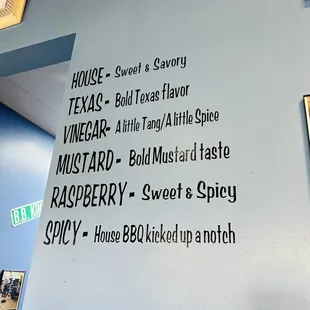 HOUSE - Sweet & Savory
TEXAS - Bold Texas flavor
VINEGAR - A little Tang/A little Spice
MUSTARD - Bold Mustard taste
RASPBERRY - Sweet & Spicy
SPICY - House BBQ kicked up a notch
B.B. KIN